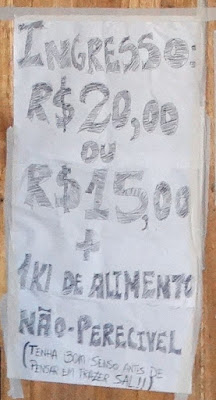 INGRESSO:
R$20,00
OU
R$15,00
+
1KI DE ALIMENTO
NÃO-PERECIVEL
(TENHA BOM SENSO ANTES DE
PENSAR EM TRAZER SAL!!)